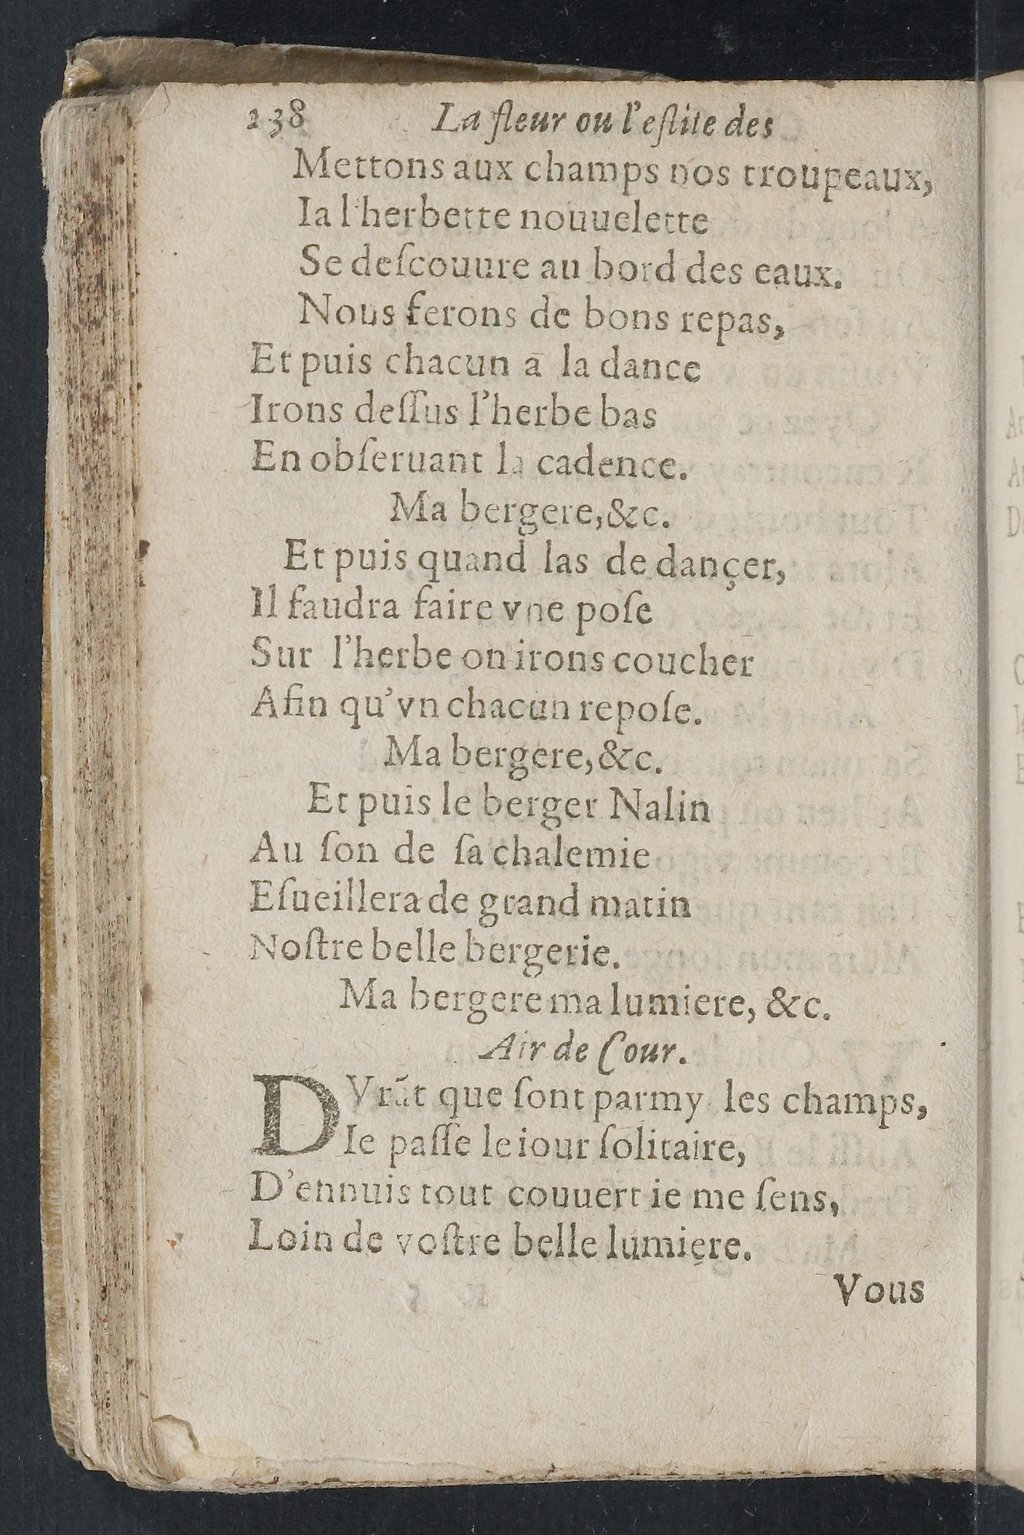 138 La fleur ou l'eslite des
Mettons aux champs nos troupeaux,
Ia l'herbette nouuelette
Se deſcouure au bord des eaux.
Nous ferons de bons repas,
Et puis chacun a la dance
Irons deſſus l'herbe bas
En obſeruant la cadence.
Ma bergere, &c.
Et puis quand las de dançer,
Il faudra faire vne poſe
Sur l'herbe on irons coucher
Afin qu'vn chacun repoſe.
Ma bergere, &c.
Et puis le berger Nalin
Au ſon de ſa chalemie
Eſueillera de grand matin
Noſtre belle bergerie.
Ma bergere ma lumiere, &c.
Air de Cour.
DVrãt que ſont parmy les champs,
Ie paſſe le iour ſolitaire,
D'ennuis tout couuert ie me ſens,
Loin de voſtre belle lumiere.
Vous